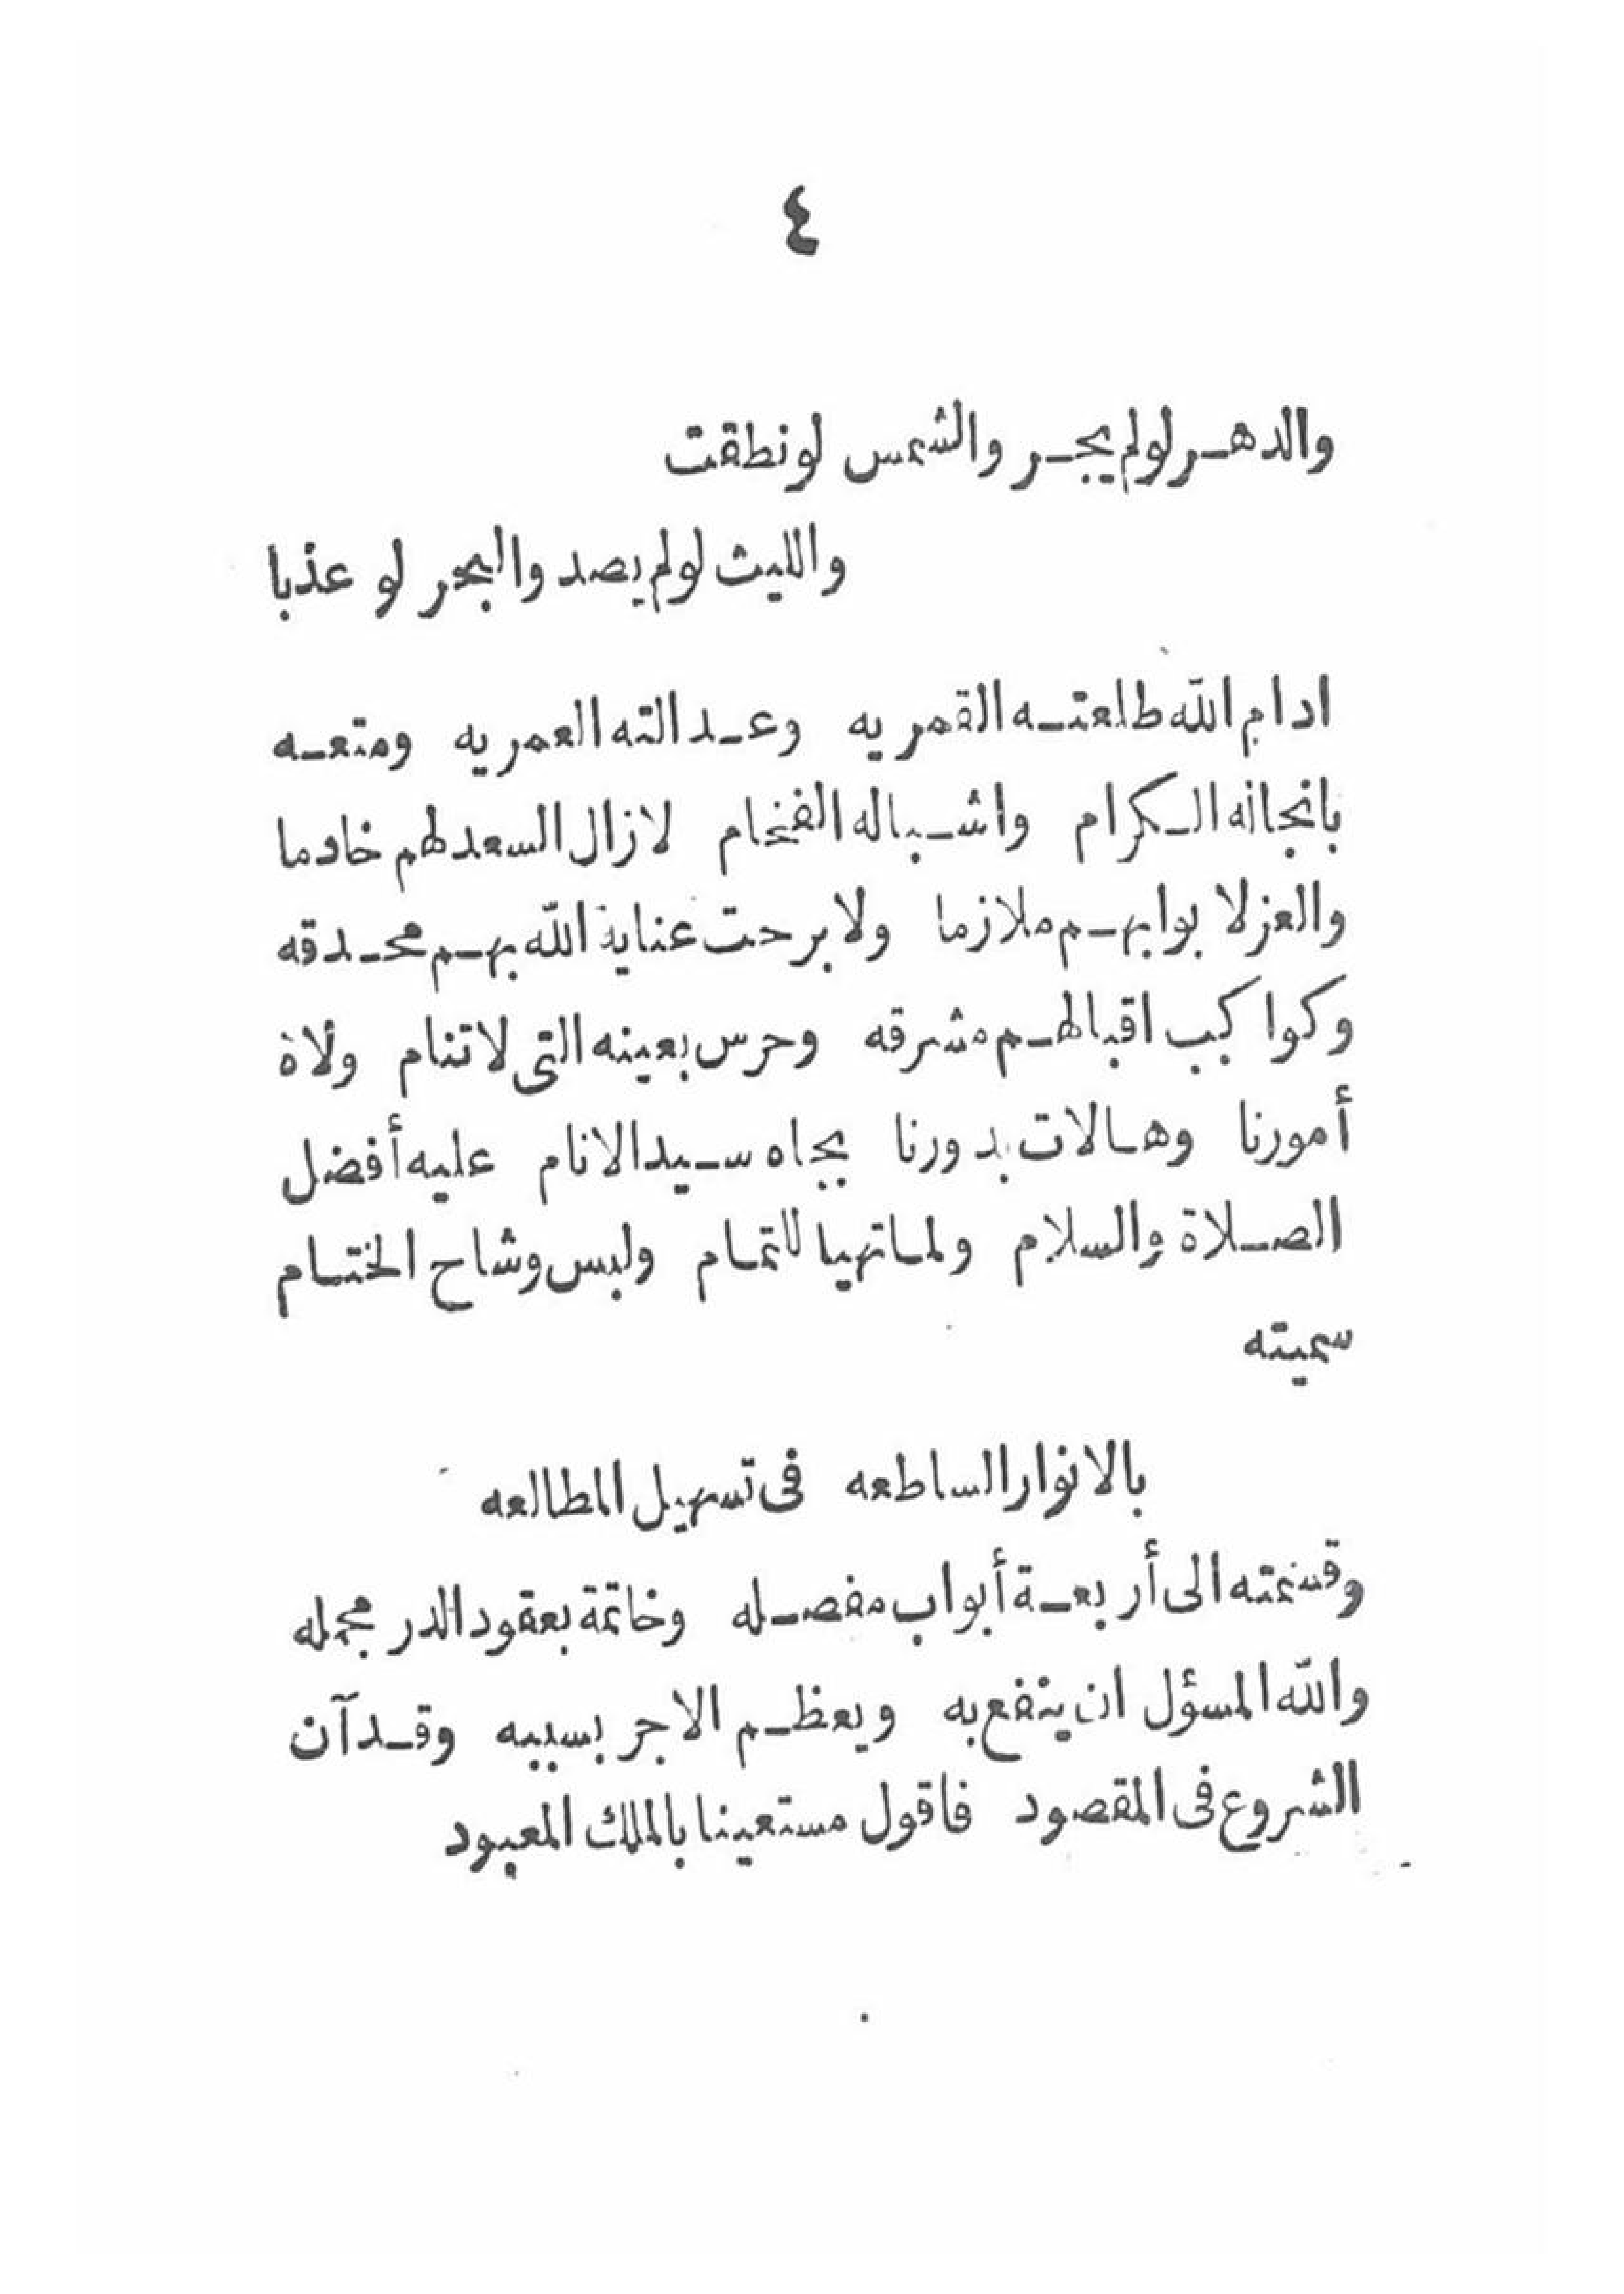 ٤
والدهر لولم يجر والشمس لو نطقت
والليث لولم يصد والبحر لو عذبا
ادام الله طلعته القمريه وعدالته العمريه ومتعه
بانجاله الكرام واشباله الفخام لازال السعد لهم خادما
والعز لابوابهم ملازما ولا برحت عناية الله بهم محدقه
وكواكب اقبالهم مشرقه وحرس بعينه التى لاتنام ولاة
أمورنا وهالات بدورنا بجاه سيد الانام عليه أفضل
الصلاة والسلام ولما تهيا للتمام ولبس وشاح الختام
سميته
بالانوار الساطعه فى تسهيل المطالعه
وقسمته الى أربعة أبواب مفصله وخاتمة بعقود الدر مجمله
والله المسؤل ان ينفع به ويعظم الاجر بسببه وقد آن
الشروع فى المقصود فاقول مستعينا بالملك المعبود